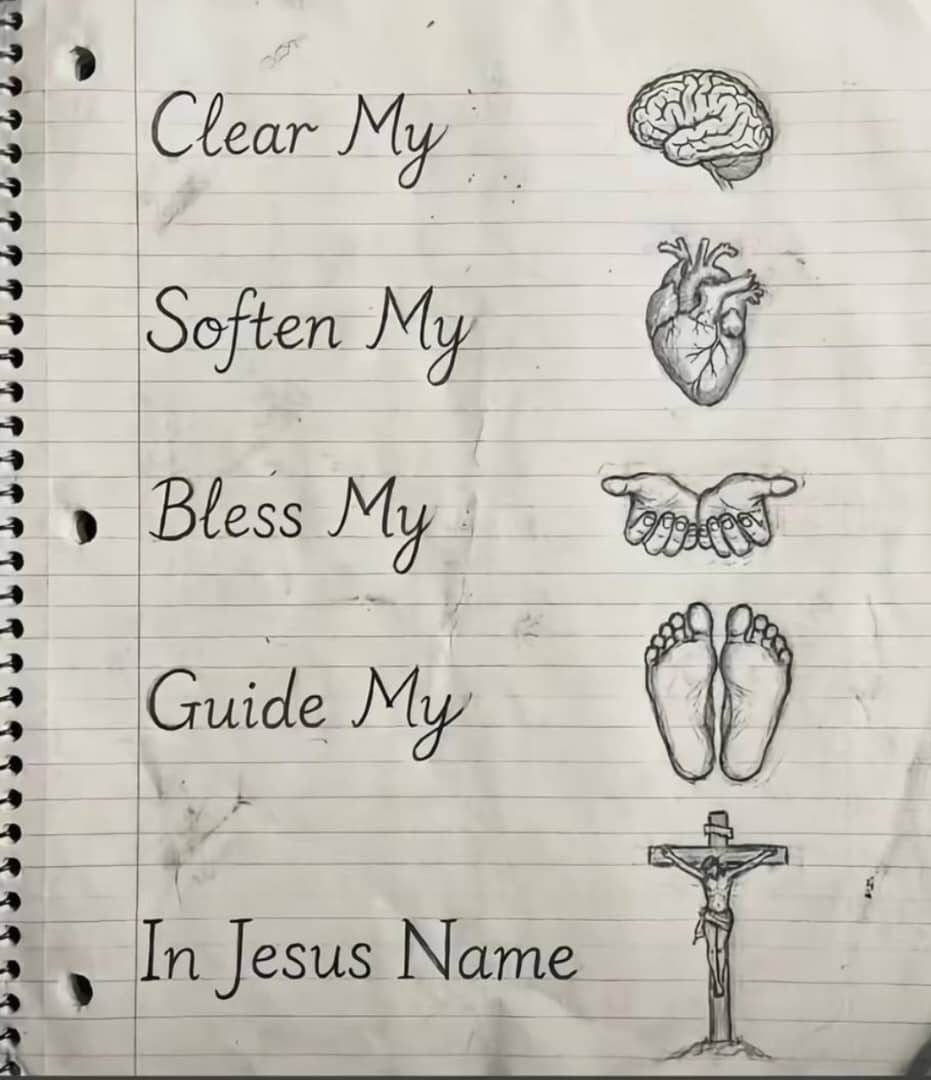 Clear My
Soften My
Bless My
Guide My
In Jesus Name